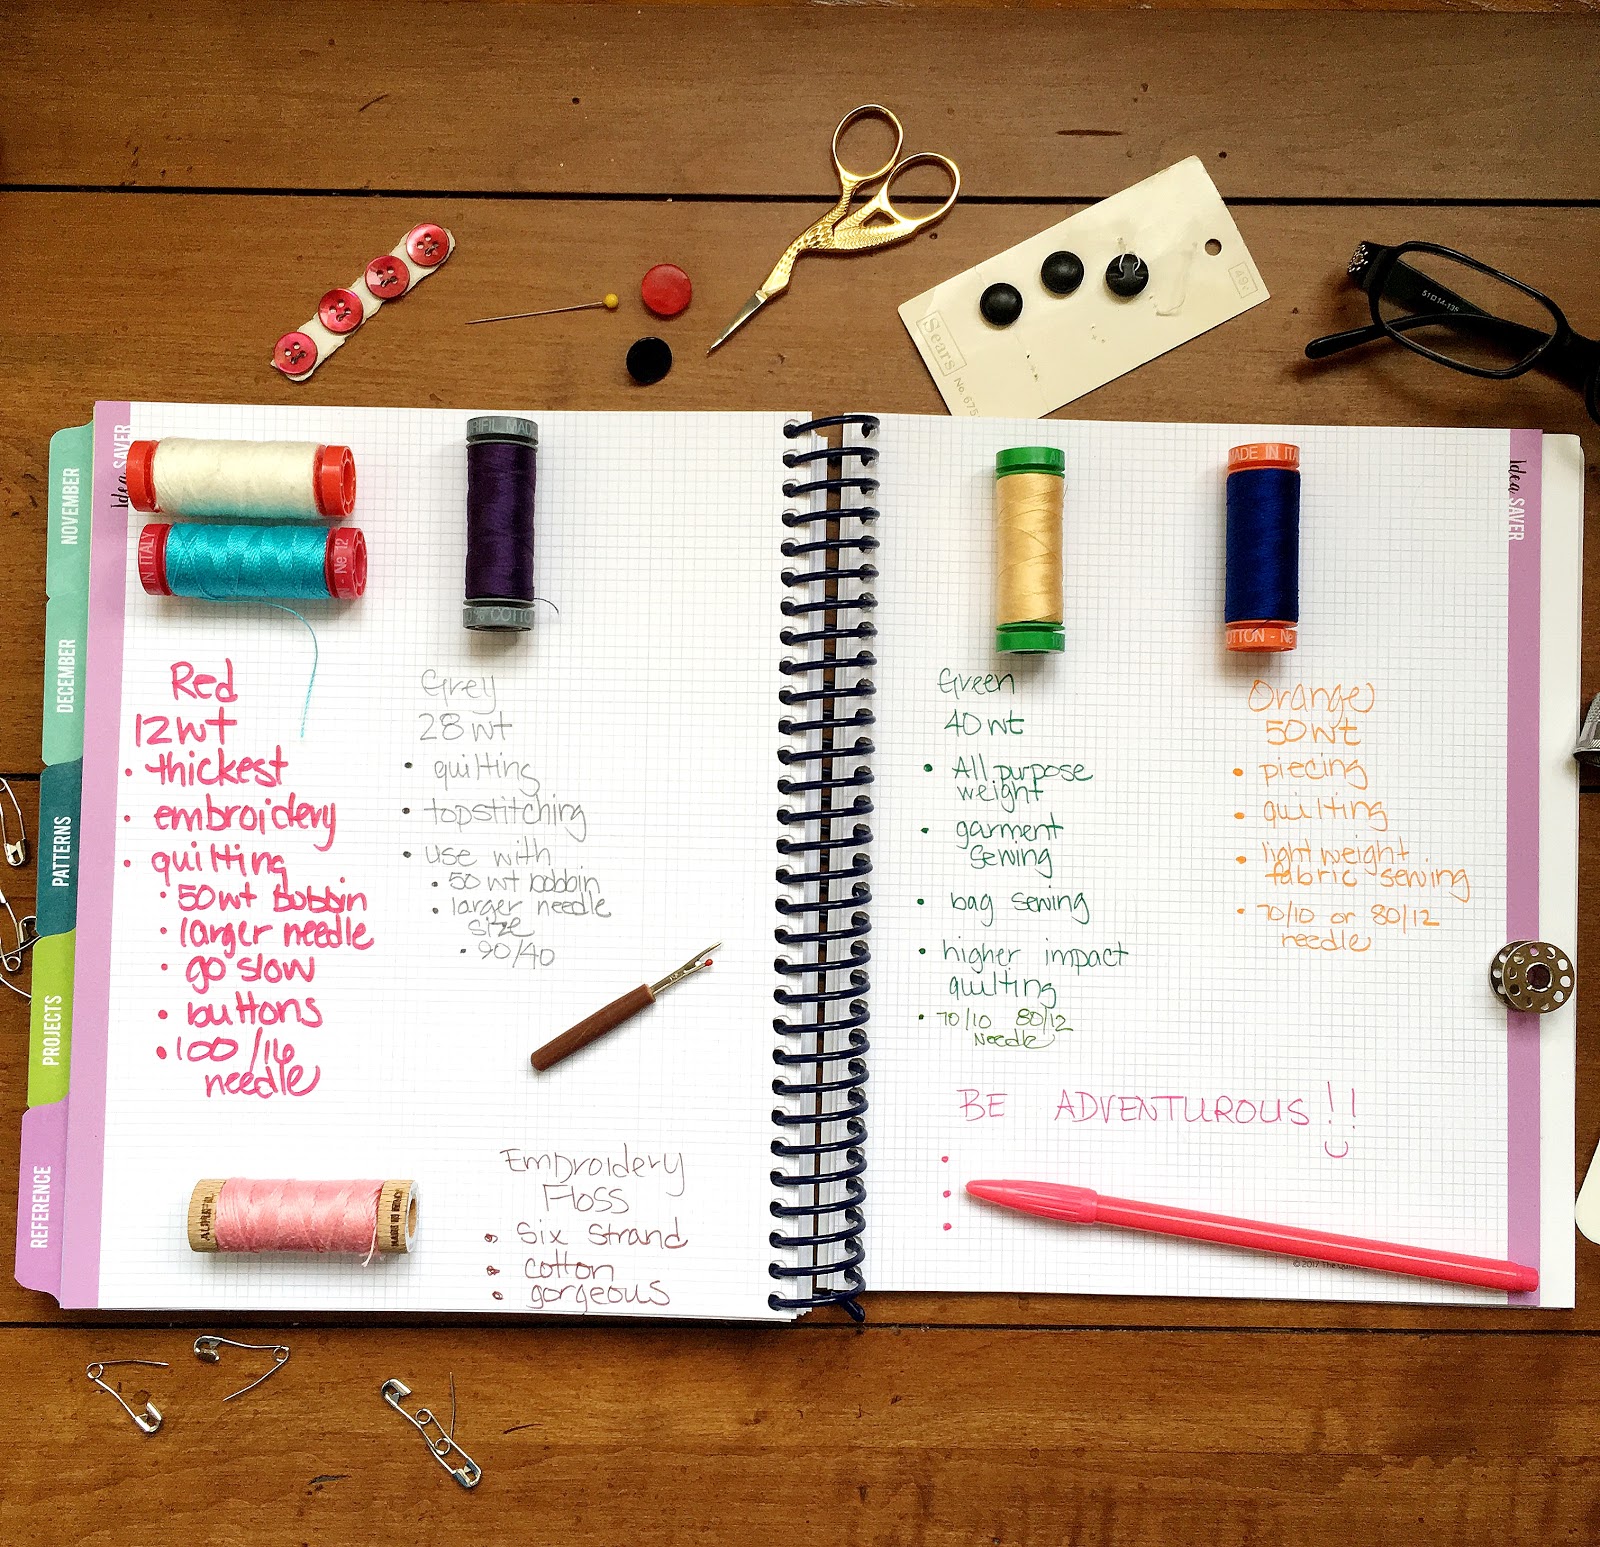 Sears
No. 675
49¢
51□14-135
NOVEMBER
DECEMBER
PATTERNS
PROJECTS
REFERENCE
Idea SAVER
IN ITALY
- Ne 12
RIFIL MAD
% COTTO
Red
12wt
• thickest
• embroidery
• quilting
• 50wt bobbin
• larger needle
• go slow
• buttons
• 100/16
needle
Grey
28wt
• quilting
• topstitching
• use with
• 50wt bobbin
• larger needle
size
• 90/40
AURIFIL
Embroidery
Floss
• Six Strand
• cotton
• gorgeous
Idea SAVER
MADE IN ITA
COTTON - Ne
Green
40wt
• All purpose
weight
• garment
sewing
• bag sewing
• higher impact
quilting
• 70/10 80/12
Needle
Orange
50wt
• piecing
• quilting
• light weight
fabric sewing
• 70/10 or 80/12
needle
BE ADVENTUROUS!!
© 2017 The Quilt